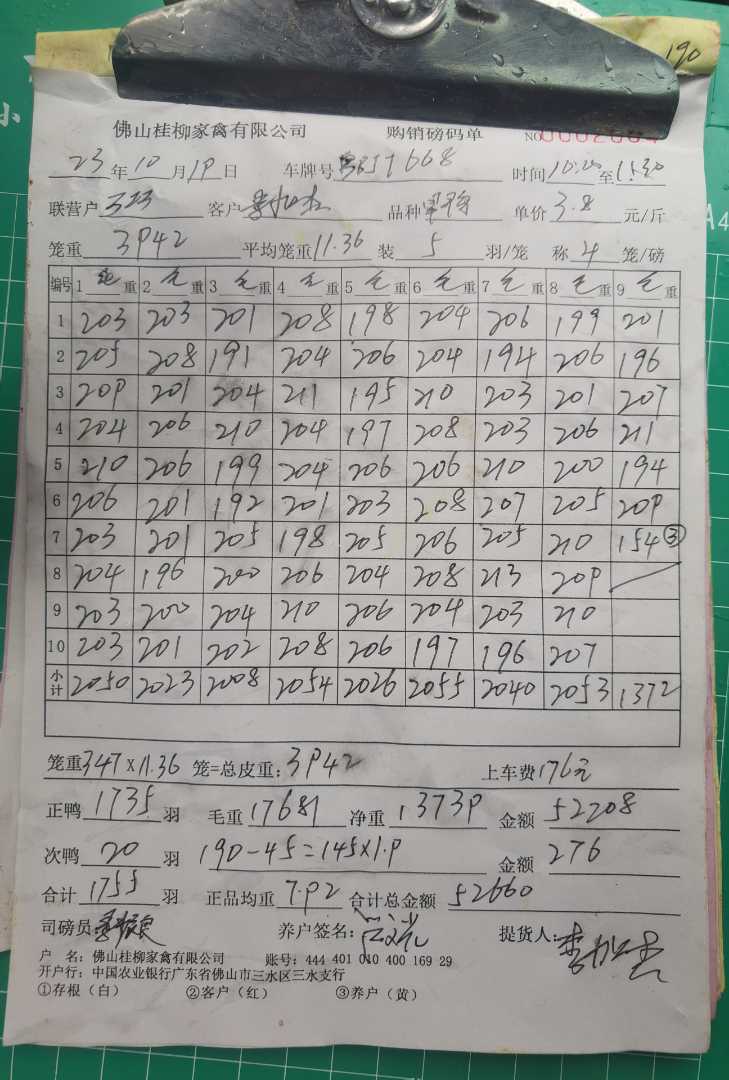 190
佛山桂柳家禽有限公司 购销磅码单 NO 0002664
23年10月19日 车牌号 668 时间10:20至11:30
联营户 客户 品种 单价3.8元/斤
笼重3942 平均笼重11.36 装5羽/笼 称4笼/磅
编号 1毛重 2毛重 3毛重 4毛重 5毛重 6毛重 7毛重 8毛重 9毛重
1 203 203 201 208 198 204 206 199 201
2 205 208 191 204 206 204 194 206 196
3 209 201 204 211 195 210 203 201 207
4 204 206 210 204 197 208 203 206 211
5 210 206 199 204 206 206 210 200 194
6 206 201 192 201 203 208 207 205 209
7 203 201 205 198 205 206 205 210 154③
8 204 196 200 206 204 208 213 209
9 203 200 204 210 206 204 203 210
10 203 201 202 208 206 197 196 207
小计 2050 2023 2008 2054 2026 2055 2040 2053 1372
笼重347×11.36 笼=总皮重:3942 上车费176元
正鸭1735羽 毛重17681 净重13739 金额52208
次鸭20羽 190-45=145×1.9 金额276
合计1755羽 正品均重7.92 合计总金额52660
司磅员: 养户签名: 提货人:
户 名:佛山桂柳家禽有限公司 账号:444 401 010 400 169 29
开户行:中国农业银行广东省佛山市三水区三水支行
①存根(白) ②客户(红) ③养户(黄)